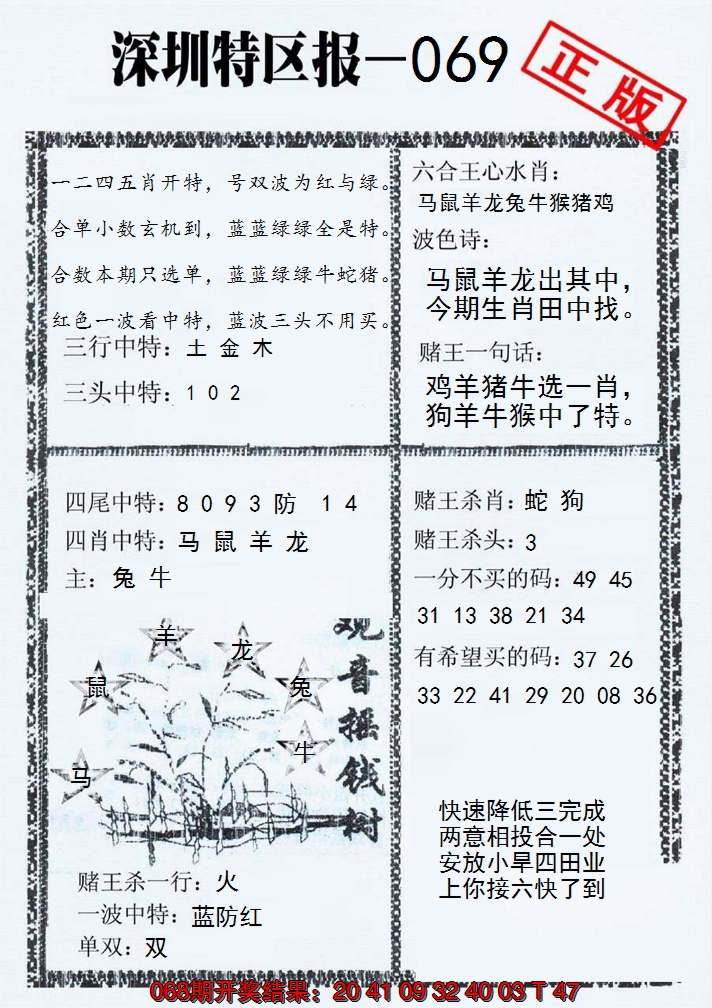 深圳特区报—069
正版
一二四五肖开特，号双波为红与绿。
合单小数玄机到，蓝蓝绿绿全是特。
合数本期只选单，蓝蓝绿绿牛蛇猪。
红色一波看中特，蓝波三头不用买。
三行中特：土 金 木
三头中特：1 0 2
六合王心水肖：
马鼠羊龙兔牛猴猪鸡
波色诗：
马鼠羊龙出其中，
今期生肖田中找。
赌王一句话：
鸡羊猪牛选一肖，
狗羊牛猴中了特。
四尾中特：8 0 9 3 防 1 4
四肖中特：马 鼠 羊 龙
主：兔 牛
羊
龙
鼠
兔
牛
马
观音摇钱树
赌王杀一行：火
一波中特：蓝防红
单双：双
赌王杀肖：蛇 狗
赌王杀头：3
一分不买的码：49 45
31 13 38 21 34
有希望买的码：37 26
33 22 41 29 20 08 36
快速降低三完成
两意相投合一处
安放小旱四田业
上你接六快了到
068期开奖结果：20 41 09 32 40 03 T 47